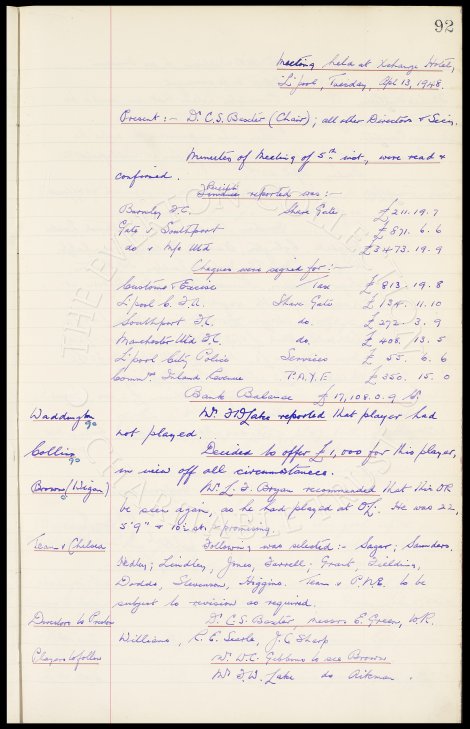 92
Meeting held at Xchange Hotel,
L'pool, Tuesday, Apl 13, 1948.
Present :- Dr. C.S. Baxter (Chair); all other Directors & Secy.
Minutes of Meeting of 5th inst, were read &
confirmed.
Receipts
Finance reported was :-
Burnley F.C. Share Gate £211.19.7
Gate v Southport £871.6.6
do v M/c Utd £3473.19.9
Cheques were signed for :-
Customs & Excise Tax £813.19.8
L'pool C. F.A. Share Gate £134.11.10
Southport F.C. do. £272.3.9
Manchester Utd F.C. do. £408.13.5
L'pool City Police Services £55.6.6
Commrs. Inland Revenue P.A.Y.E £350.15.0
Bank Balance £17,108.0.9
Waddington Mr. F.W. Lake reported that player had
90
not played.
Collins Decided to offer £1,000 for this player,
90
in view of all circumstances.
Brown (Wigan) Mr. L. F. Bryan recommended that this OR
be seen again, as he had played at OL. He was 22,
5'9" & 10½ st. & promising.
Team v Chelsea Following was selected :- Sagar; Saunders,
Dedley; Lindley, Jones, Farrell; Grant, Fielding,
Dodds, Stevenson, Higgins. Team v P.N.E. to be
subject to revision as required.
Directors to Preston Dr. C.S. Baxter, Messrs E. Green, W.R.
Williams, R.E. Searle, J.C. Sharp
Players to follow Mr. W.C. Gibbins to see Brown
Mr. F.W. Lake do Aitkman.